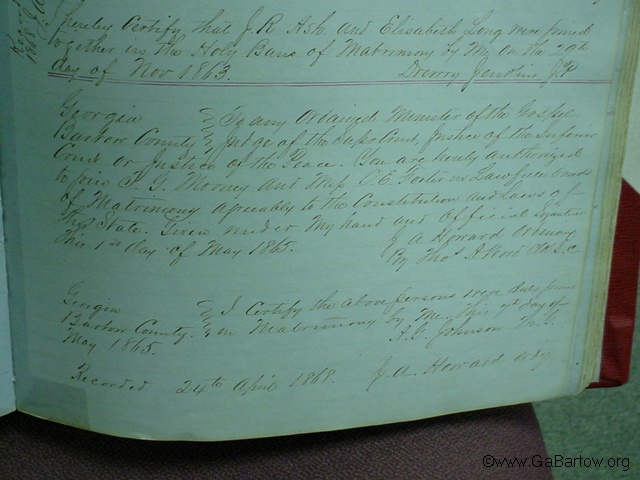 I hereby Certify that J. R. Ash and Elisabeth Long were joined
together in the Holy Bans of Matrimony by Me on the 20th
day of Nov 1863. Drewry Jenkins J.P.
Georgia To any Ordained Minister of the Gospel
Bartow County Judge of the Supr Court, Justice of the Inferior
Court or Justice of the Peace. You are hereby authorized
to join F. G. Mooney and Miss C. E. Foster in Lawfull bonds
of Matrimony agreeably to the Constitution and Laws of
this State. Given under My hand and Official Signature
This 1st day of May 1865. J. A. Howard Ordinary
By Thos A Word
Georgia I Certify the above persons were duly joined
Bartow County in Matrimony by Me, This 7th day of
May 1865. A. G. Johnson
Recorded 24th April 1868. J. A. Howard Ordy
©www.GaBartow.org